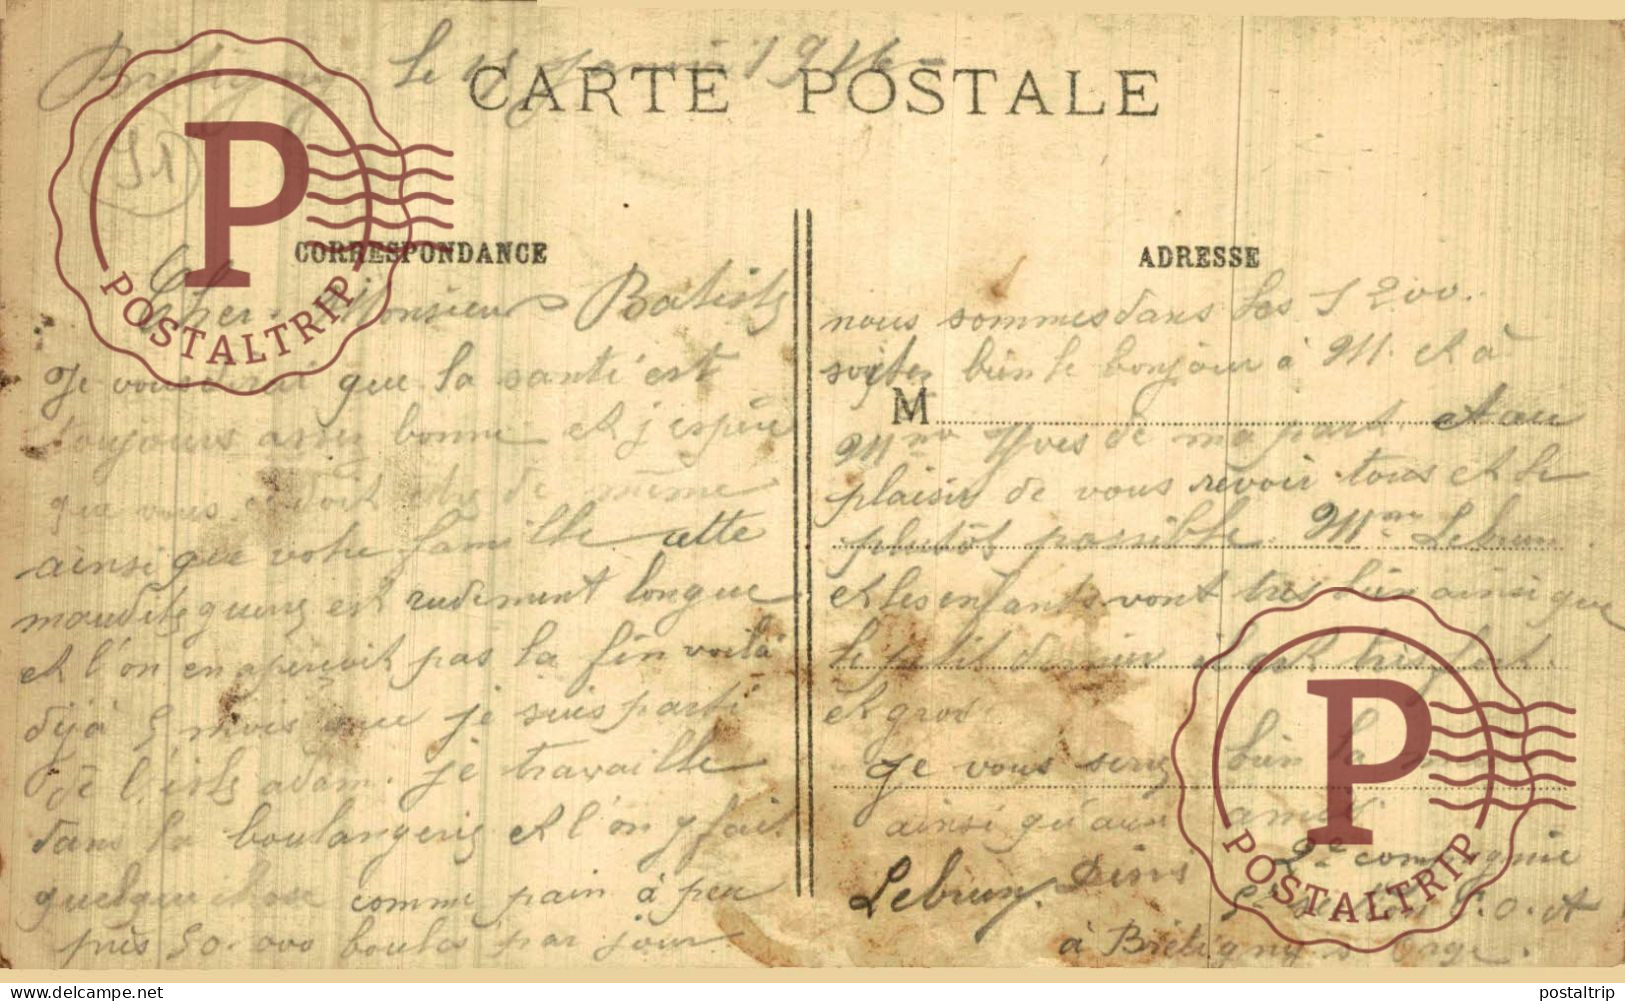 Bretigny le 18 1916
CARTE POSTALE
91
CORRESPONDANCE
Cher Monsieur Batiste
Je vous dirai que la santé est
toujours assez bonne et j'espère
que vous doit etre de même
ainsi que votre famille cette
maudite guerre est rudement longue
et l'on en aperçoit pas la fin voilà
déjà 5 mois que je suis parti
de l'isle adam. je travaille
dans la boulangerie et l'on y fait
quelque chose comme pain à peu
près 50.000 boules par jour
ADRESSE
nous sommes dans les 1200.
soitez bien le bonjour à M. et à
M
Mme Yves de ma part et au
plaisir de vous revoir tous et le
plutôt possible. Mme Lebrun
et les enfants vont très bien ainsi que
le petit dernier il est très fort
et gros
Je vous serre bien la main
ainsi qu'aux amis
Lebrun. Denis 2e compagnie
5e section C.O.A
à Brétigny s Orge.
P
POSTALTRIP
P
POSTALTRIP
www.delcampe.net
postaltrip